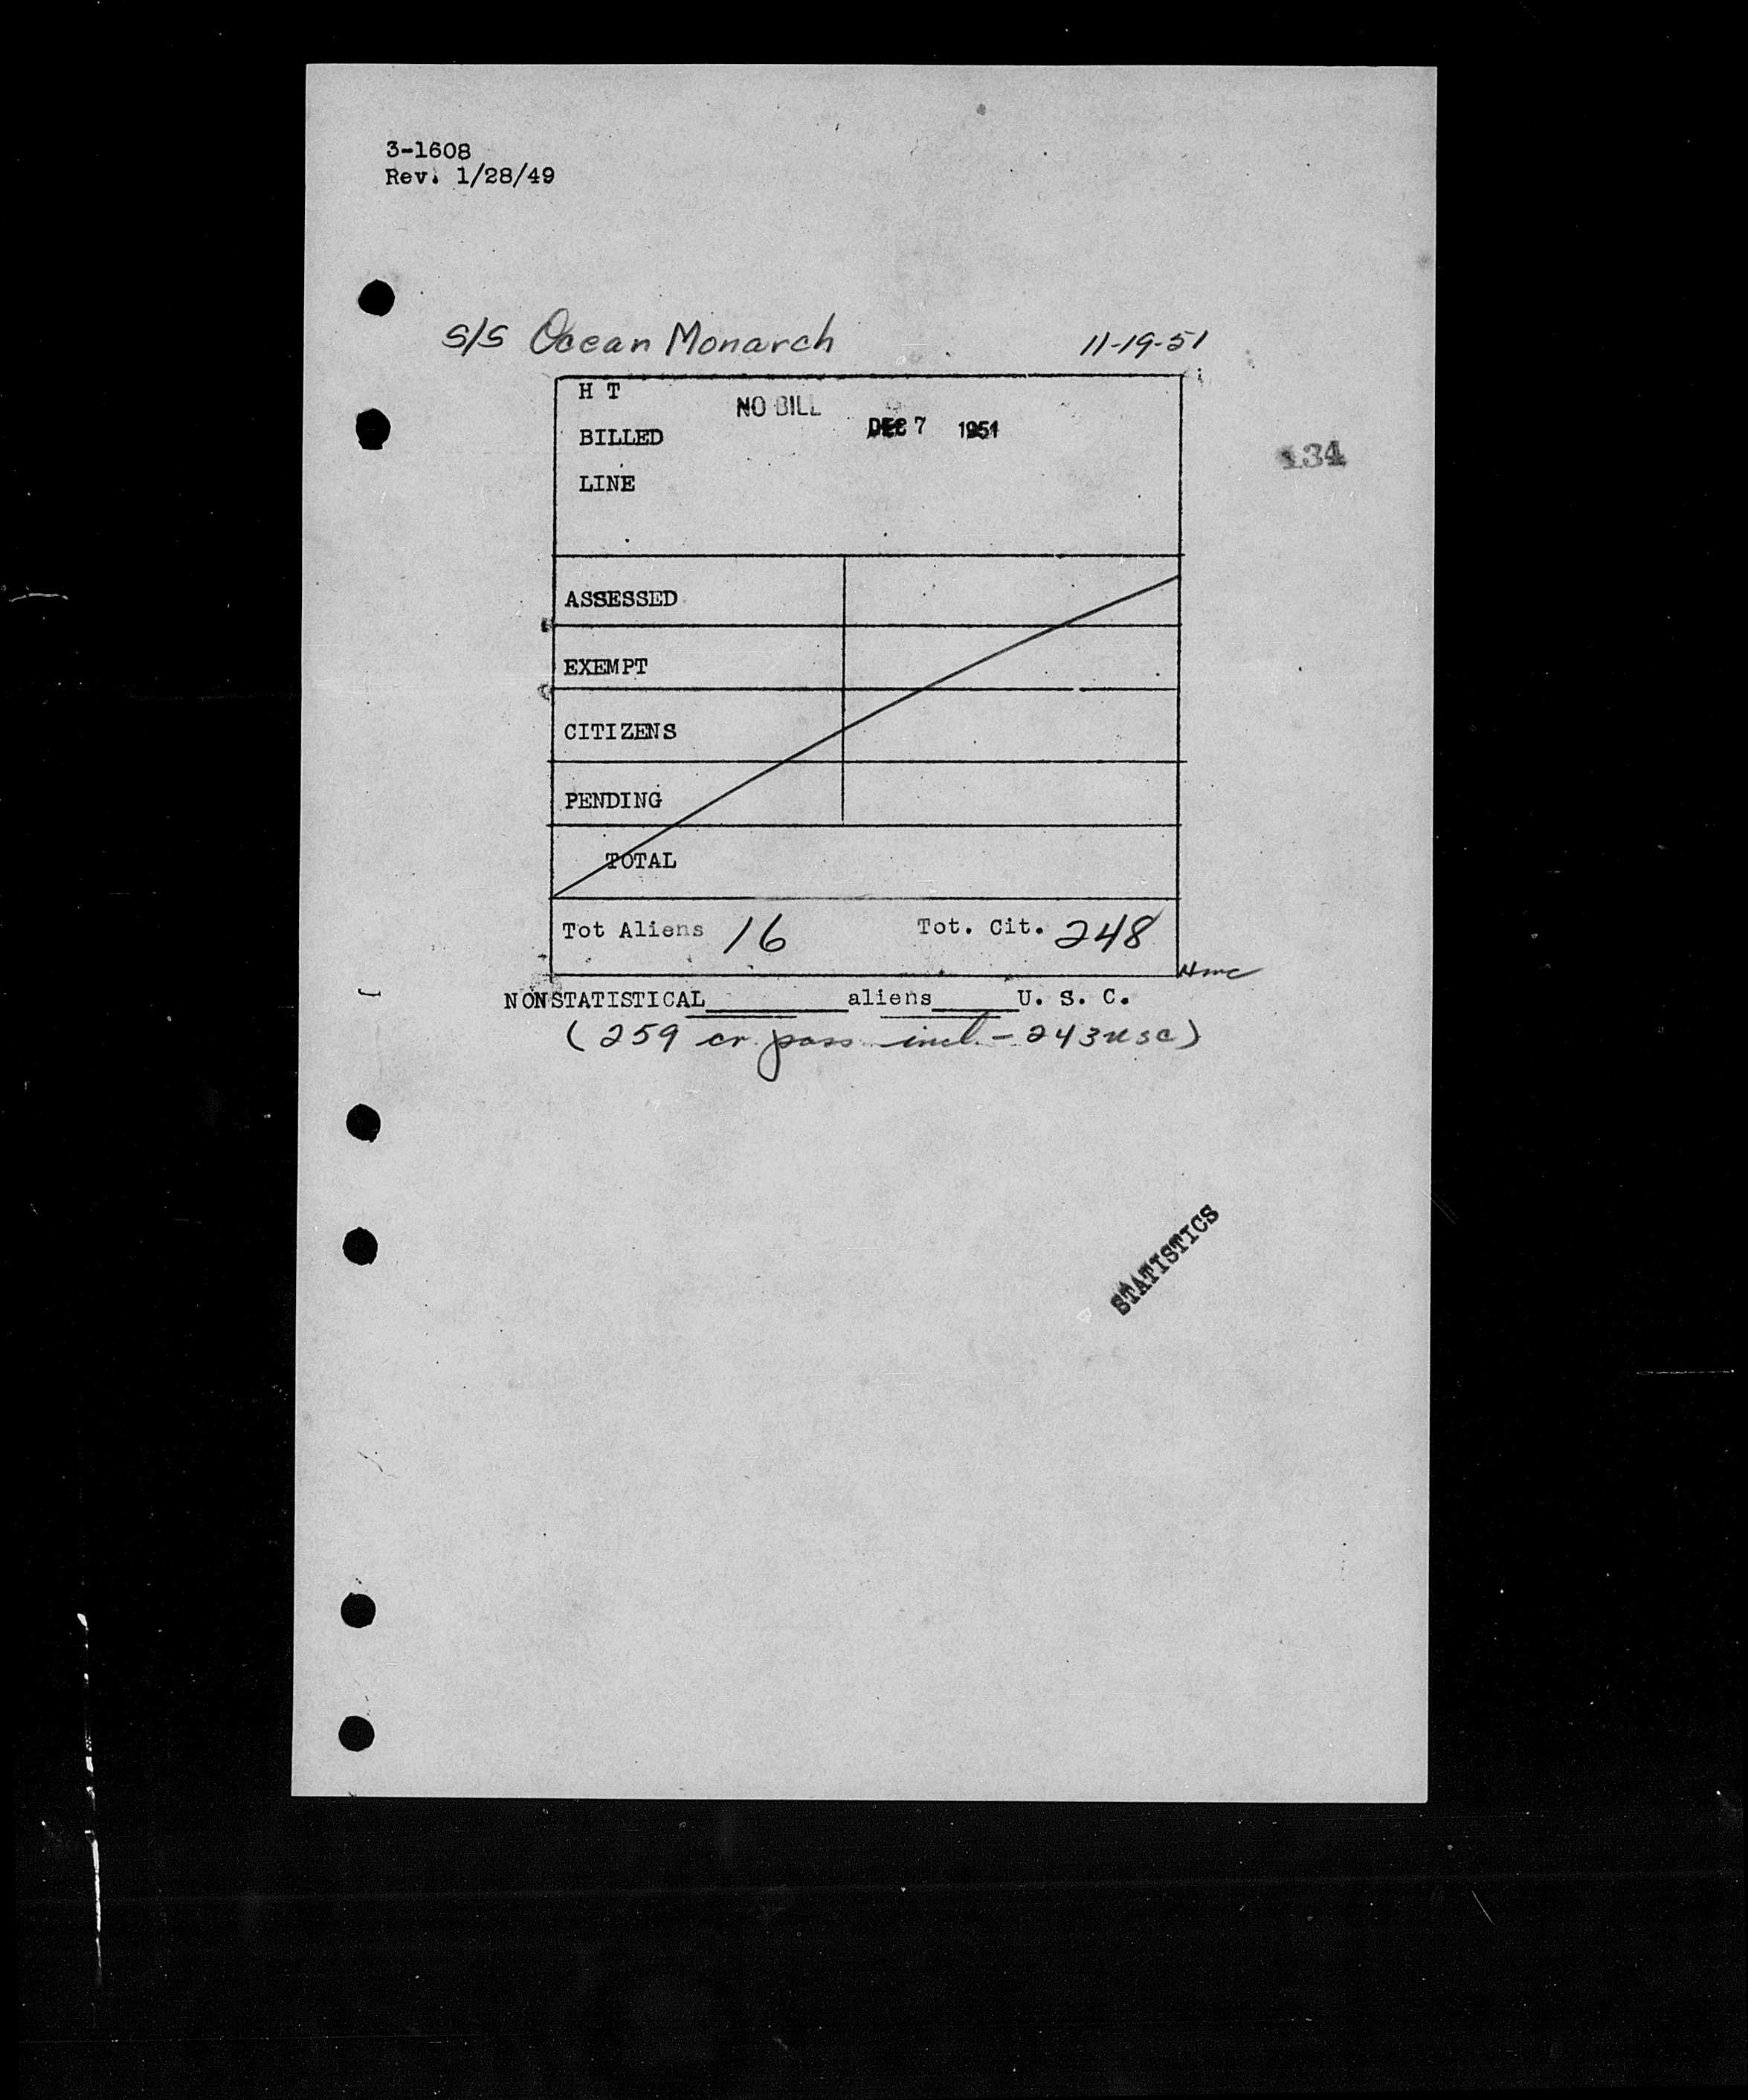 3-1608
Rev. 1/28/49
S/S Ocean Monarch 11-19-51
H T
NO BILL
BILLED DEC 7 1951
134
LINE
ASSESSED
EXEMPT
CITIZENS
PENDING
TOTAL
Tot Aliens 16 Tot. Cit. 248
NONSTATISTICAL__________aliens_____U. S. C.
(259 cr pass incl. - 243 usc)
STATISTICS